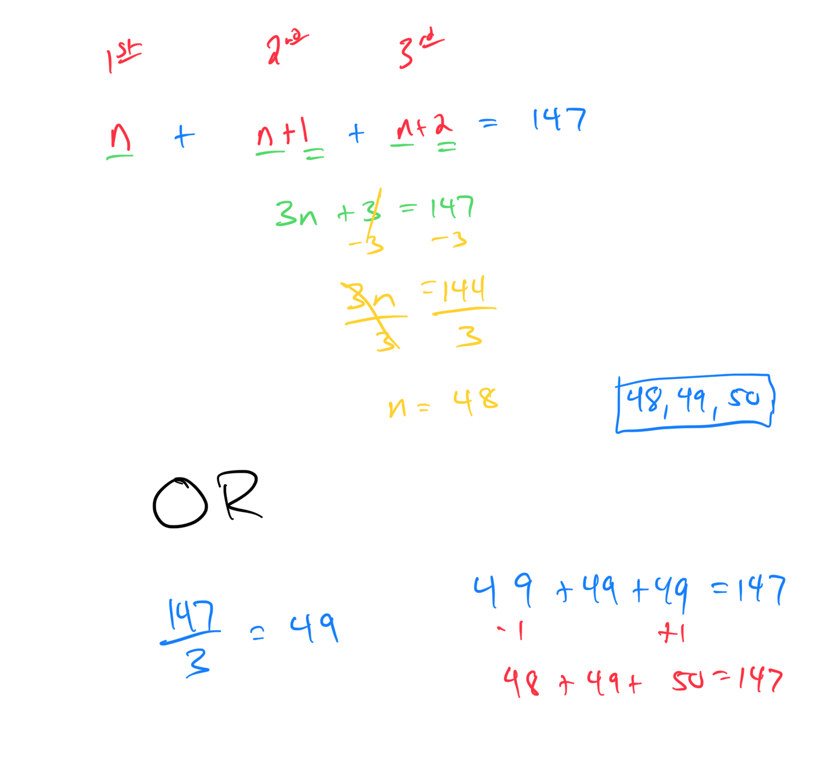 1st 2nd 3rd
n + n+1 + n+2 = 147
3n + 3 = 147
-3 -3
3n = 144
3 3
n = 48
48, 49, 50
OR
147
3
= 49
49 + 49 + 49 = 147
-1 +1
48 + 49 + 50 = 147